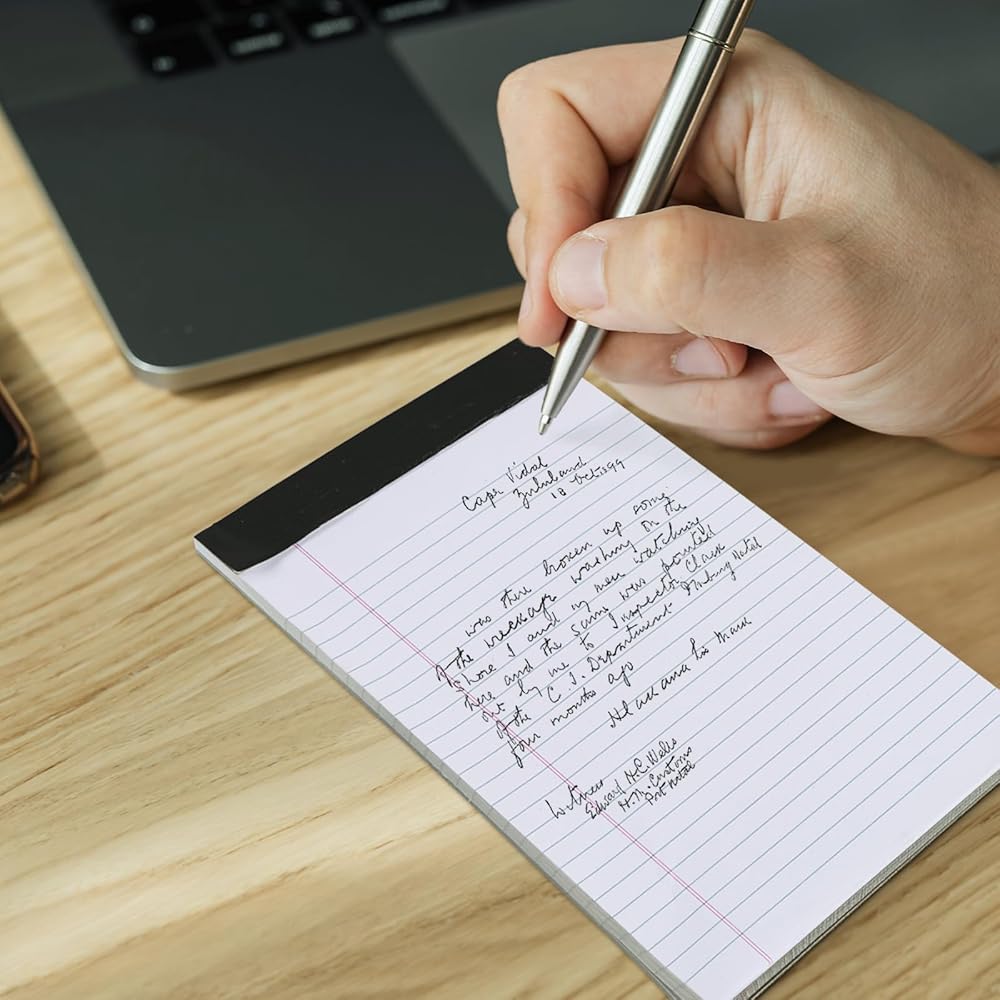 Cape Vidal
Zululand
18 Oct 1899
was there broken up some
of the wreckage washing on the
shore I and my men watching
here and the same was pointed
out by me to Inspector Clark
of the C. I. Department Pmburg Natal
four months ago
his mark
Witness
Edward H.C. Wells
H. M. Customs
Port Natal